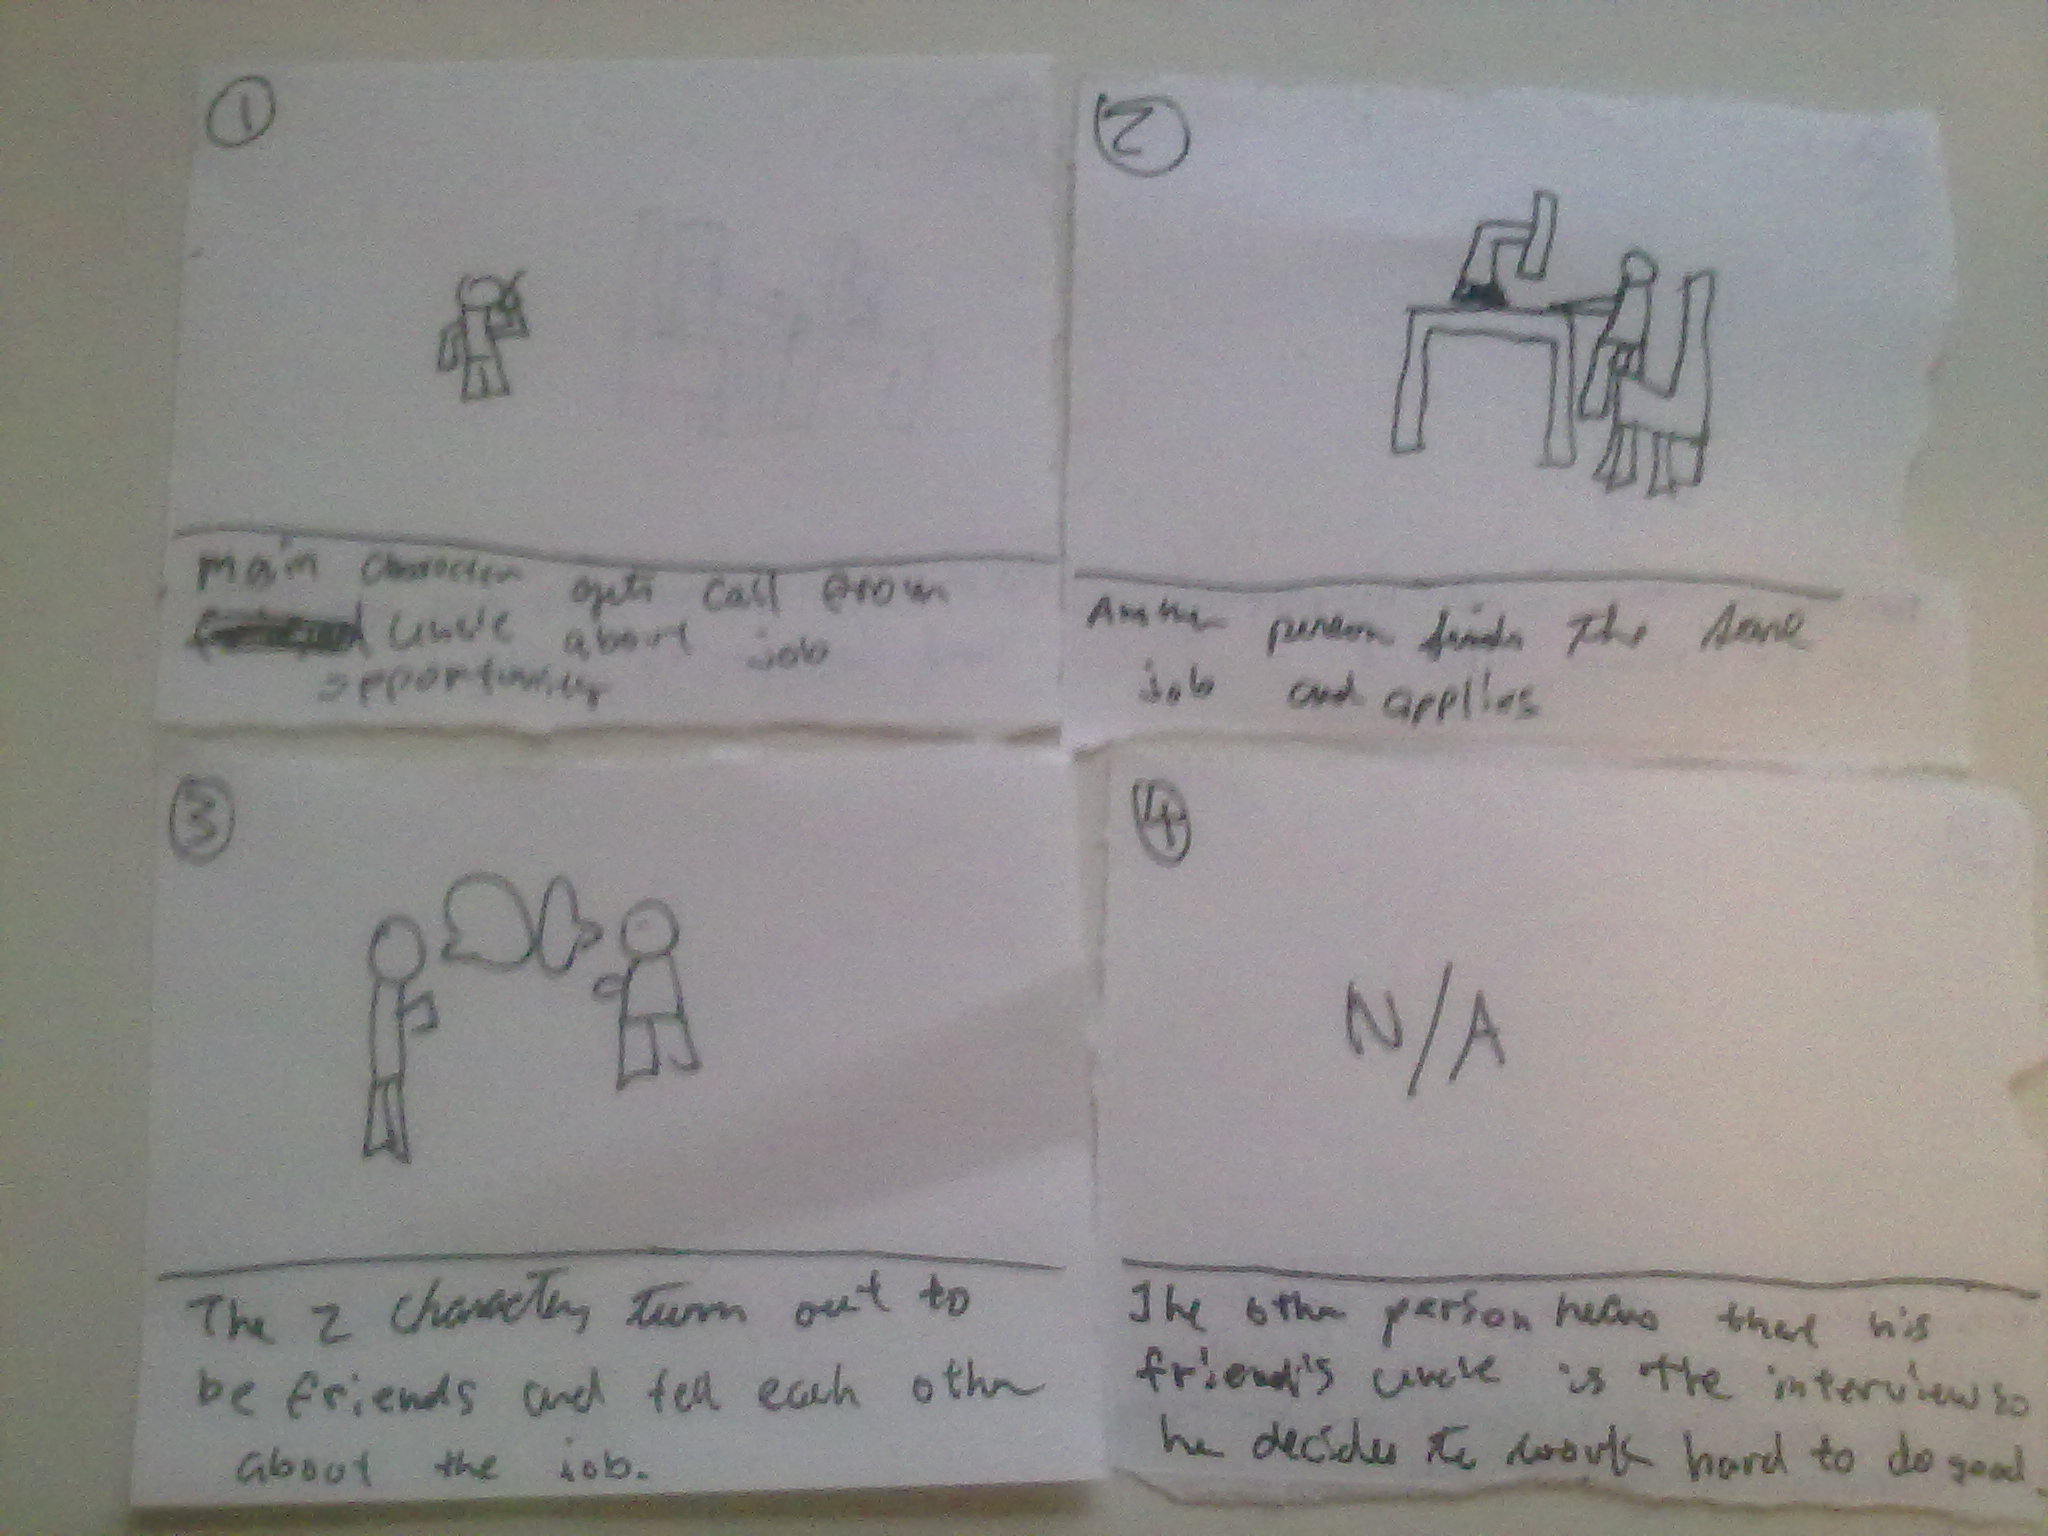 1
Main character gets call from
uncle about job
opportunity
2
Another person finds the same
job and applies
3
The 2 characters turn out to
be friends and tell each other
about the job.
4
N/A
The other person hears that his
friend's uncle is the interview so
he decides to work hard to do good